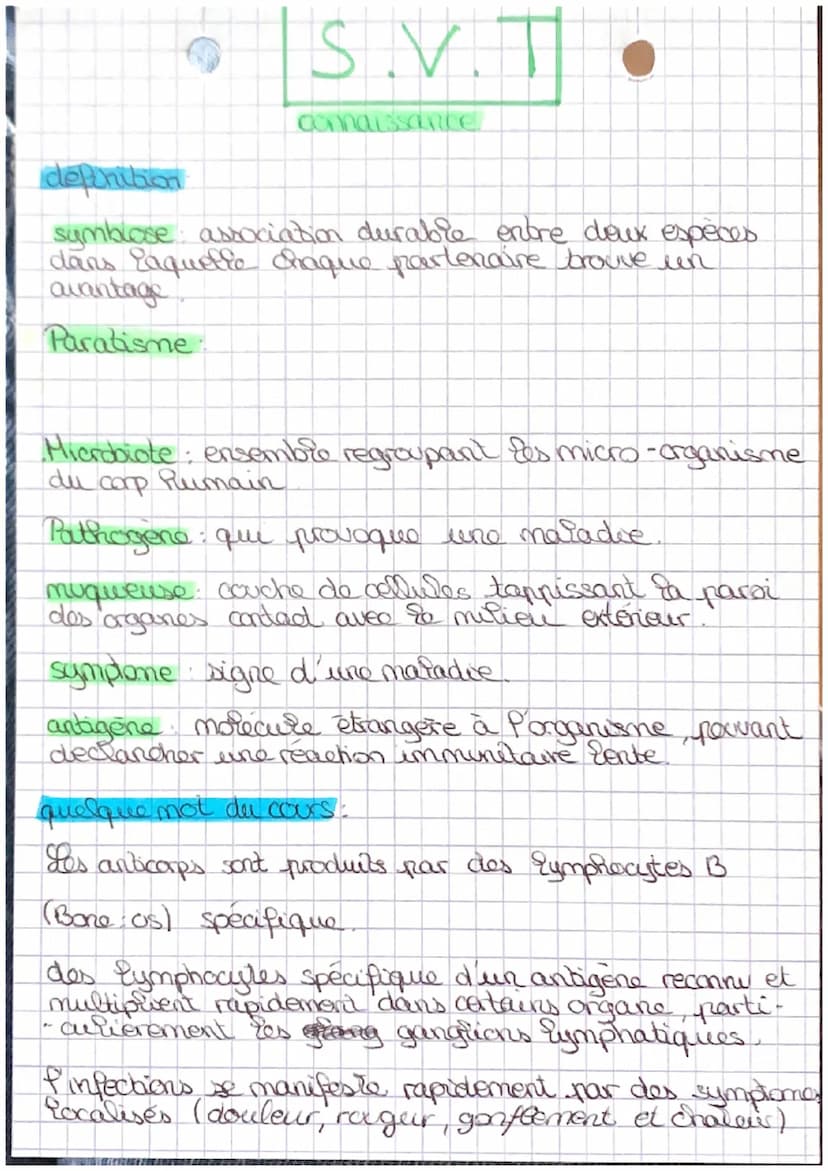 S.V.T
connaissance
définition
symbiose : association durable entre deux espèces
dans laquelle chaque partenaire trouve un
avantage.
Paratisme :
Microbiote : ensemble regroupant les micro-organisme
du corp humain
Pathogène : qui provoque une maladie.
muqueuse : couche de cellules tappissant la paroi
des organes contact avec le milieu extérieur.
symptome : signe d'une maladie.
antigène : molécule étrangère à l'organisme, pouvant
declancher une réaction immunitaire lente.
quelque mot du cours :
Les anticorps sont produits par des lymphocytes B
(Bone : os) spécifique.
des lymphocytes spécifique d'un antigène reconnu et
multiplient rapidement dans certains organe, parti-
-culièrement les ganglions lymphatiques.
l'infections se manifeste rapidement par des symptomes
localisés (douleur, rougeur, gonflement et chaleur)